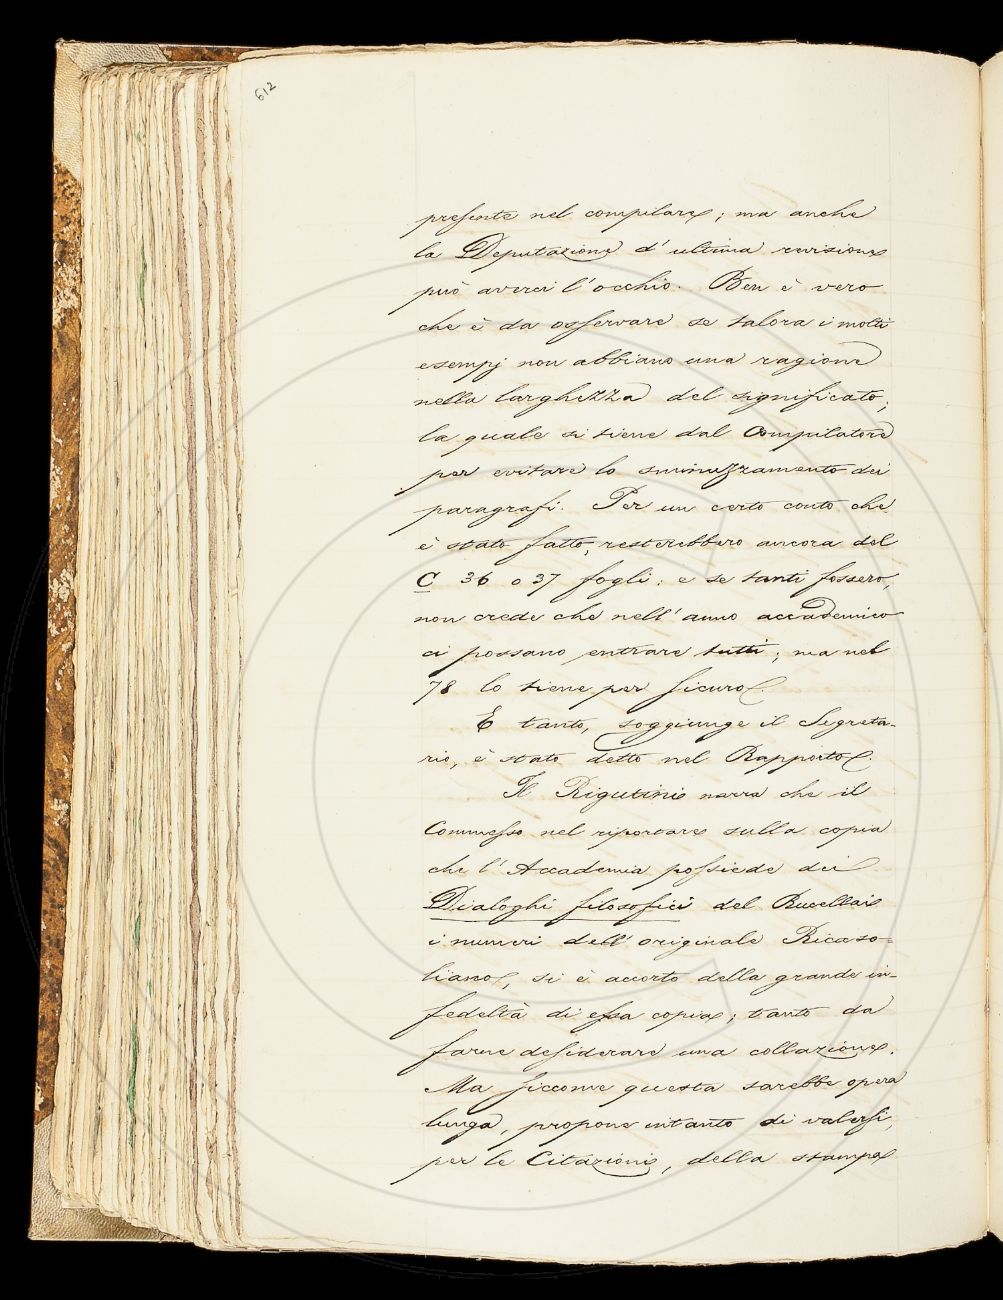 612
presente nel compilare; ma anche
la Deputazione d'ultima revisione
può averci l'occhio. Ben è vero
che è da osservare se talora i molti
esempj non abbiano una ragione
nella larghezza del significato;
la quale si tiene dal Compilatore
per evitare lo sminuzzamento dei
paragrafi. Per un certo conto che
è stato fatto, resterebbero ancora del
C 36 o 37 fogli: e se tanti fossero,
non crede che nell'anno accademico
ci possano entrare tutti; ma nel
78 lo tiene per sicuro.
E tanto, soggiunge il Segreta-
rio, è stato detto nel Rapporto.
Il Rigutini narra che il
Commesso nel riportare sulla copia
che l'Accademia possiede dei
Dialoghi filosofici del Rucellai
i numeri dell'originale Ricaso=
liano, si è accorto della grande in-
fedeltà di essa copia; tanto da
farne desiderare una collazione.
Ma siccome questa sarebbe opera
lunga, propone intanto di valersi,
per le Citazioni, della stampa